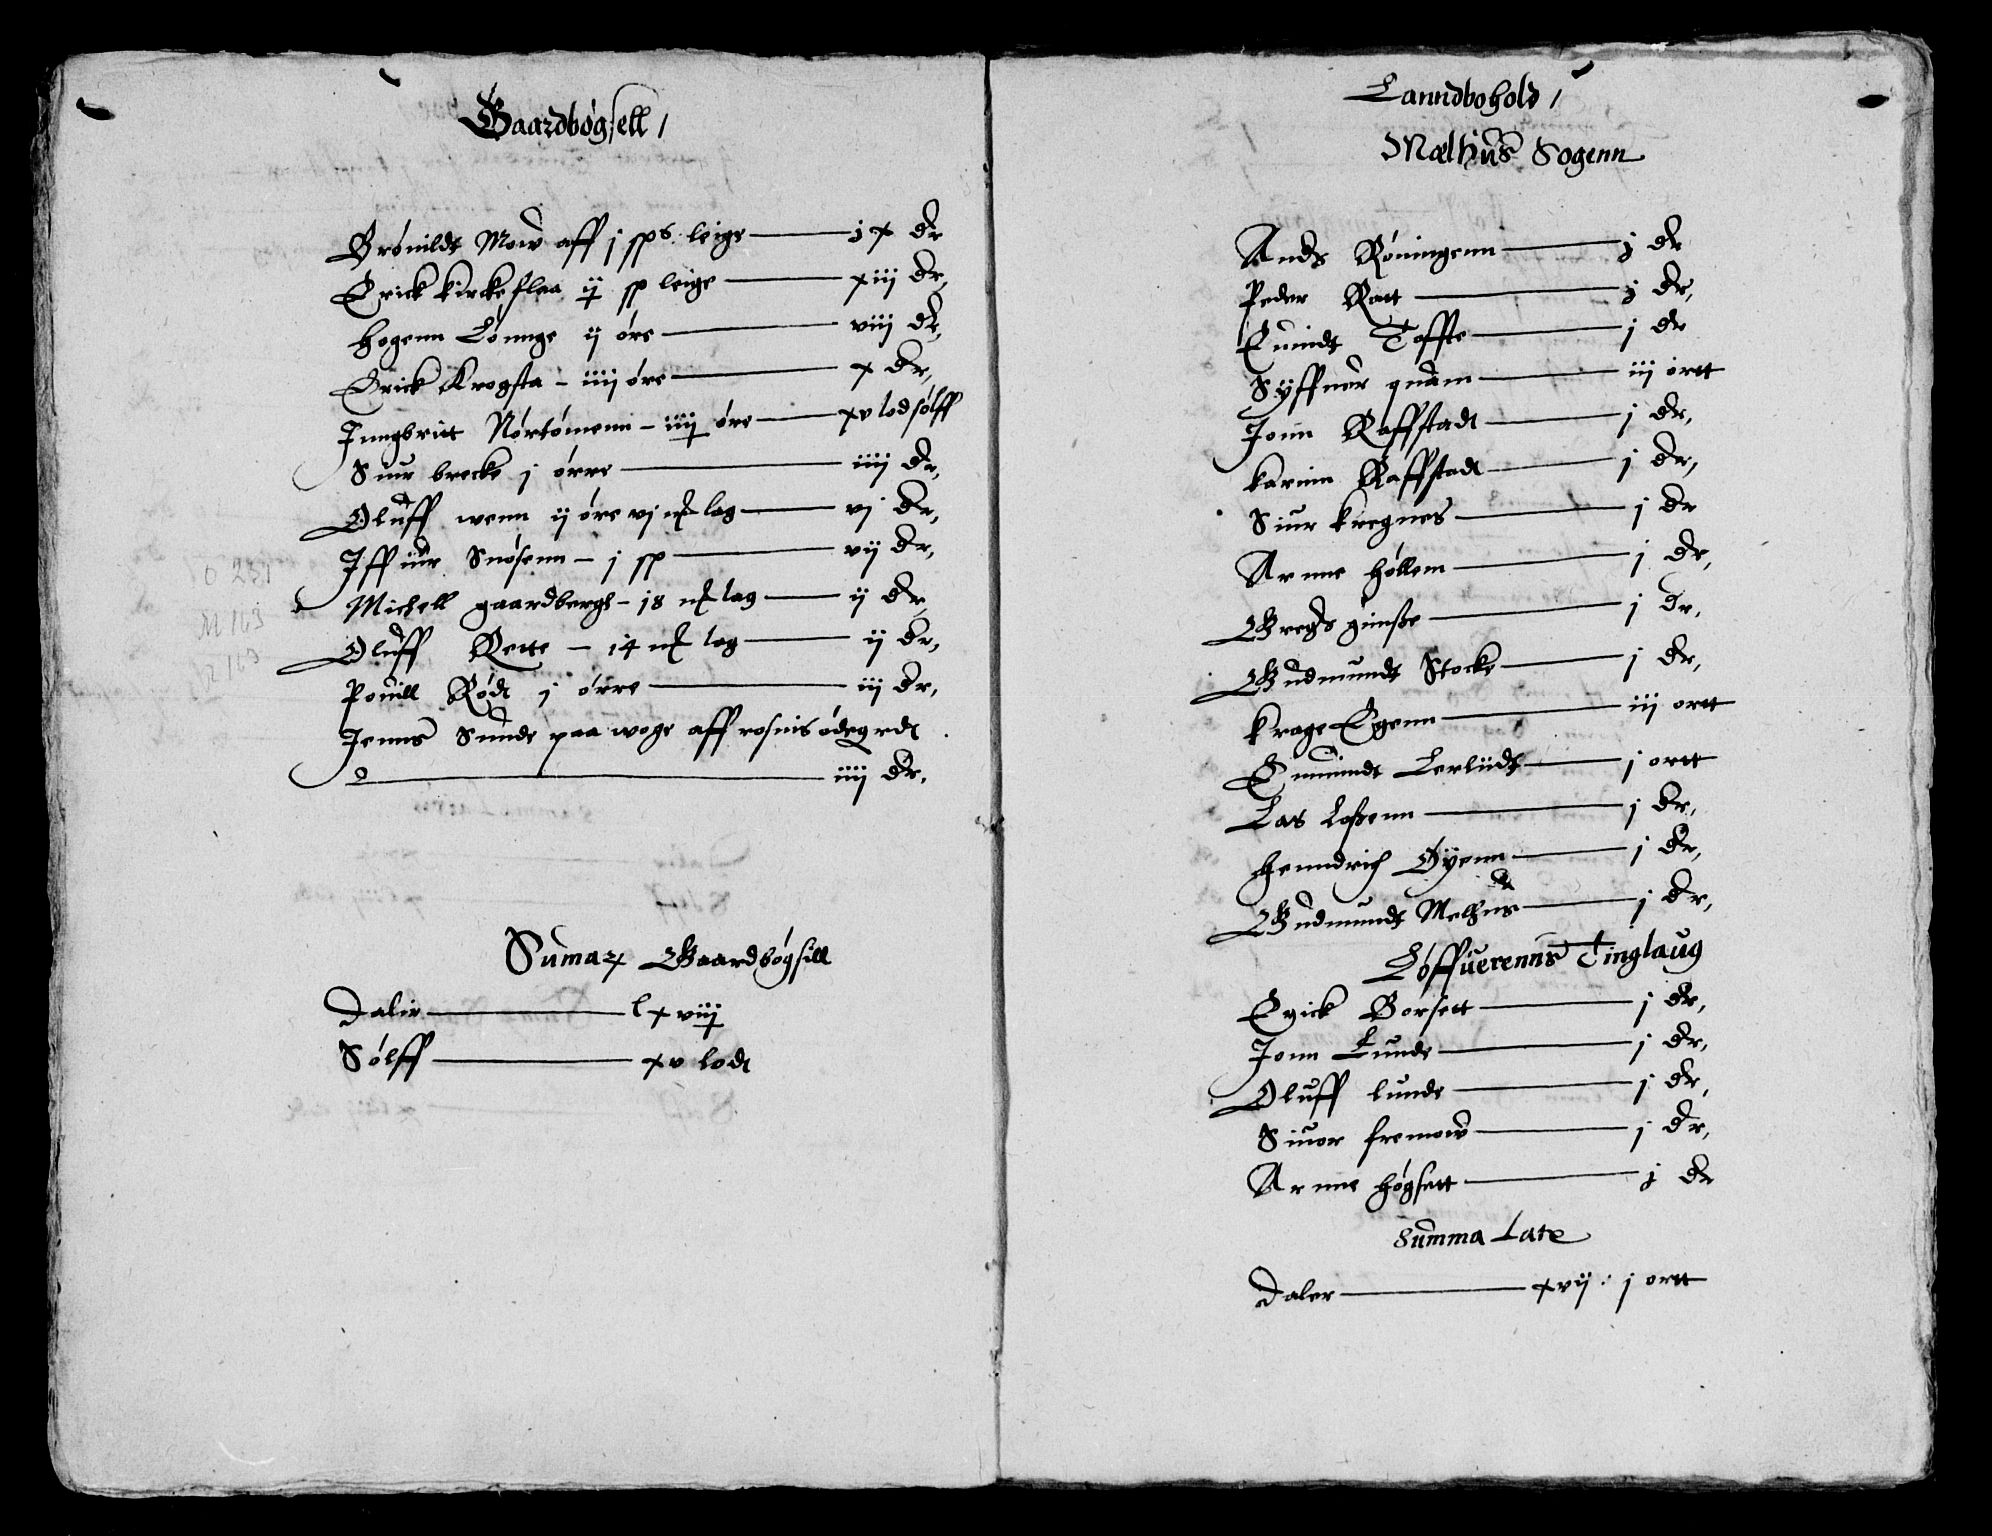 Gaardbøgsell /
Brønildt Mow aff j sps. leige — jx dr
Erick kirckeflaa ij sp leige — xiij dr,
Hogenn Lønnge ij øre — viij dr,
Erick Krogsta – iiij øre — x dr,
Jnngbritt Nørtømenn – iiij øre — xv lod sølff
Siur brecke j ørre — iiij dr,
Oluff wenn ij øre vj mk lag — vj dr,
Jffuur Snøsenn – j sp — vij dr,
Michell gaardbergh – 18 mk lag — ij dr,
Oluff Rette – 14 mk lag — ij dr,
Pouill Rødt j ørre — iij dr,
Jenns Sunde paa woge aff rosnis ødegrdt
— iiij dr,
Suma Gaardbøgsill
Dalir — lxviij
Sølff — xv lodt
Lanndbohold /
Mælhus Sogenn
Ands Røningenn — j dr
Peder Ratt — j dr,
Euindt Toffte — j dr
Syffner quam — iij ortt
Jonn Raffstadt — j dr,
karinn Raffstadt — j dr,
Siur kregnes — j dr
Arnne Høllem — j dr,
Gregs gimsße — j dr,
Gudmundt Stocke — j dr,
krage Egenn — iij ortt
Emuindt Lerliidt — j ortt
Las Loßenn — j dr,
Henndrich Øyenn — j dr,
Gudmundt Melhus — j dr,
Løffuerenns Tinglaug
Erick Borsett — j dr,
Jonn Lunde — j dr,
Oluff lunde — j dr,
Siuor fremow — j dr,
Arnne Høgsett — j dr
Summa Late
Daler — xvij : j ortt